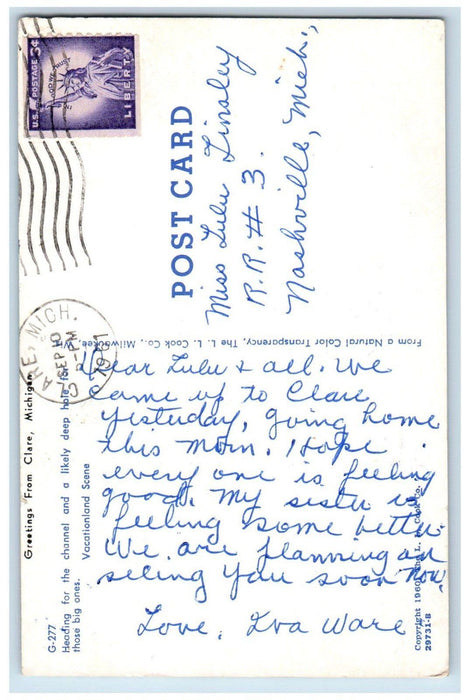 U.S. POSTAGE 3¢
IN GOD WE TRUST
LIBERTY
POST CARD
Miss Lulu Linsley
R.R. # 3.
Nashville, Mich.,
CLARE, MICH.
SEP 10
PM
1961
From a Natural Color Transparency, The L. L. Cook Co., Milwaukee, Wis.
Greetings From Clare, Michigan
G-277
Heading for the channel and a likely deep hole for
those big ones.
Vacationland Scene
Dear Lulu & all. We
came up to Clare
yesturday, going home
this morn. I hope
every one is feeling
good. My sister is
feeling some better.
We are planning on
seeing you soon now.
Love. Iva Ware
Copyright 1960, The L. L. Cook Co.
29731-B